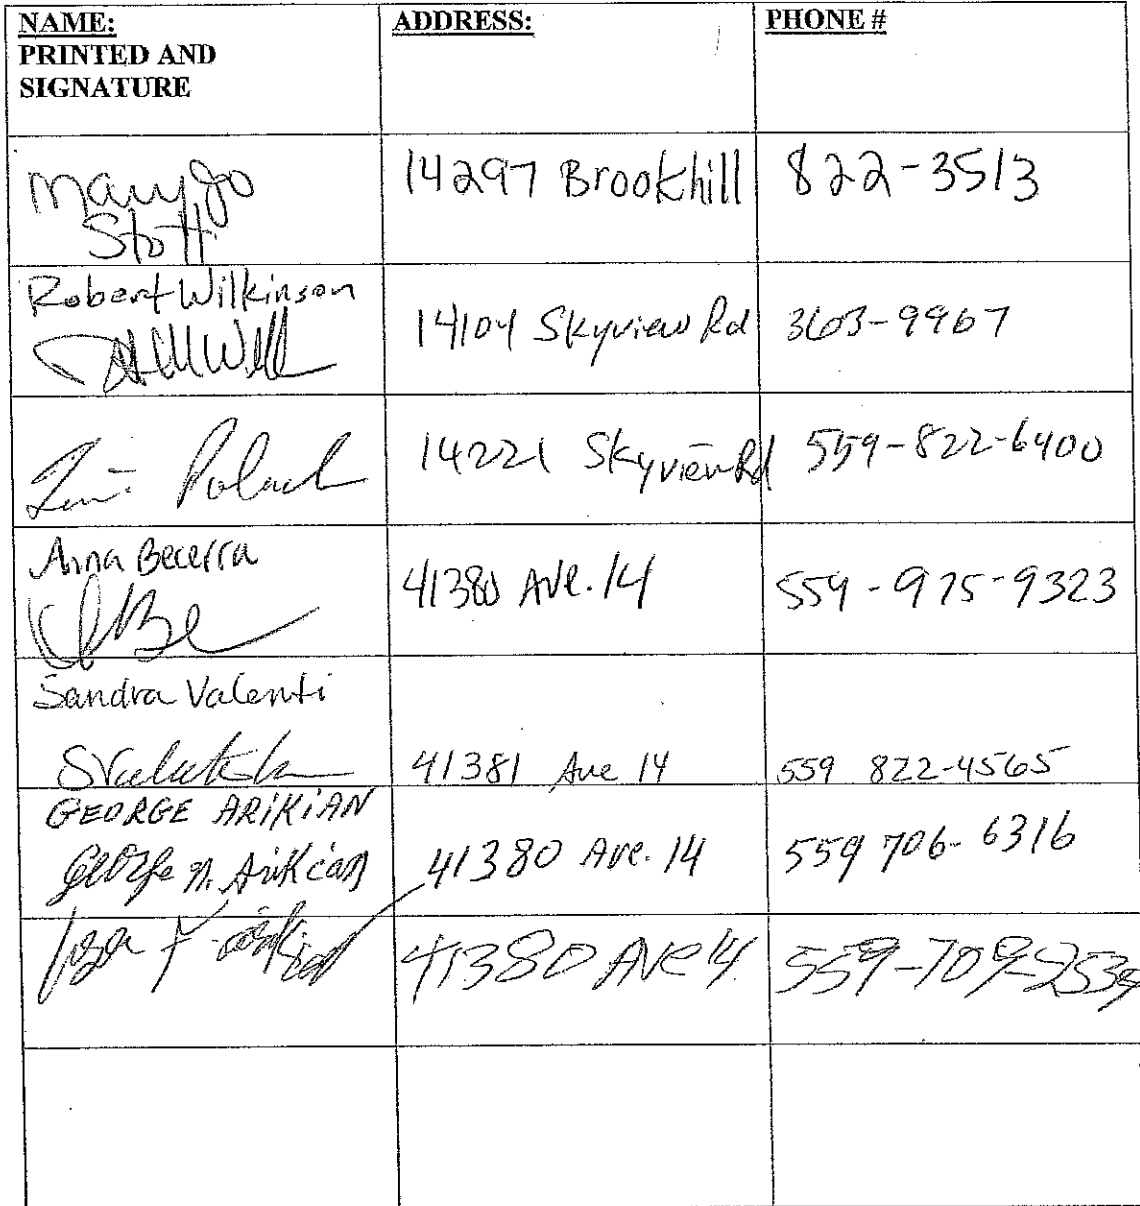 NAME:
PRINTED AND
SIGNATURE
ADDRESS:
PHONE #
Mary Jo
Stott
14297 Brookhill
822-3513
Robert Wilkinson
14104 Skyview Rd
363-9967
14221 Skyview Rd
559-822-6400
Anna Becerra
41380 Ave. 14
559-975-9323
Sandra Valenti
41381 Ave 14
559 822-4565
GEORGE ARIKIAN
George N. Arikian
41380 Ave. 14
559 706-6316
41380 AVE 14
559-709-2539